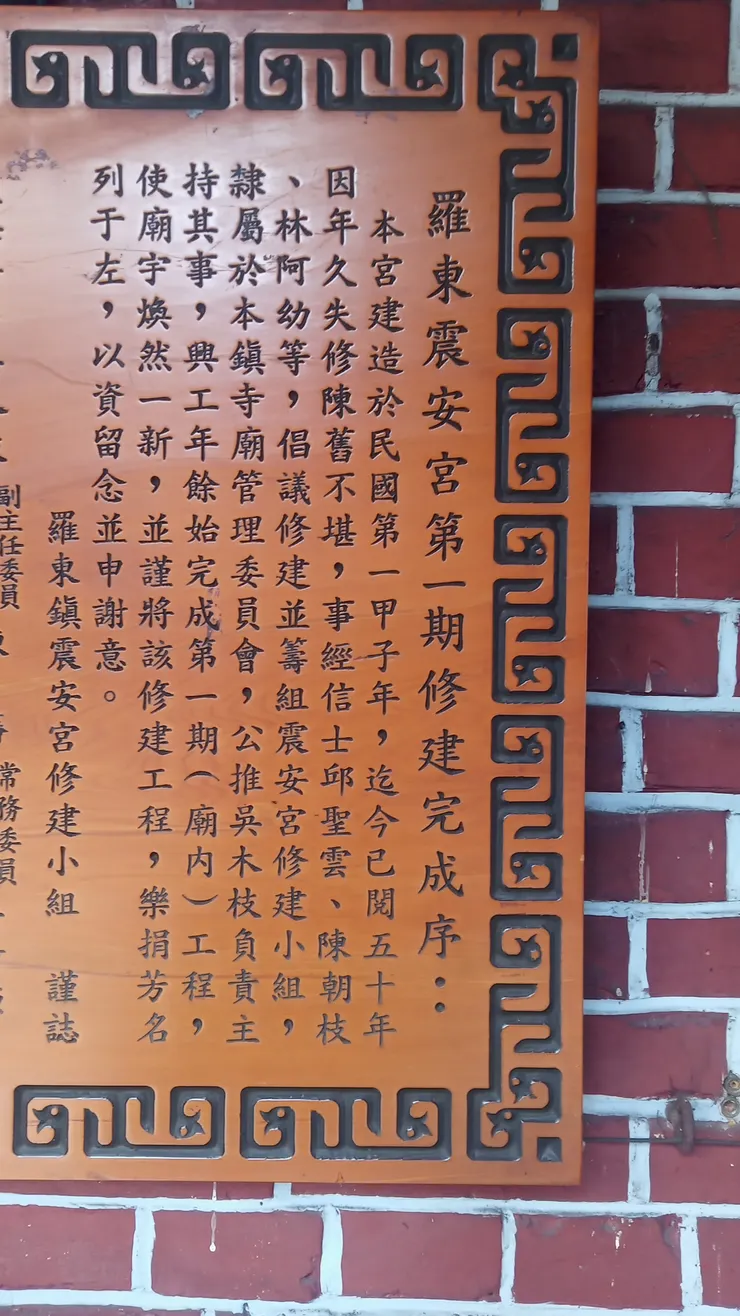 羅東震安宮第一期修建完成序：
本宮建造於民國第一甲子年，迄今已閱五十年
因年久失修陳舊不堪，事經信士邱聖雲、陳朝枝
、林阿幼等，倡議修建並籌組震安宮修建小組，
隸屬於本鎮寺廟管理委員會，公推吳木枝負責主
持其事，興工年餘始完成第一期（廟內）工程，
使廟宇煥然一新，並謹將該修建工程，樂捐芳名
列于左，以資留念並申謝意。
羅東鎮震安宮修建小組　謹誌
副主任委員
常務委員